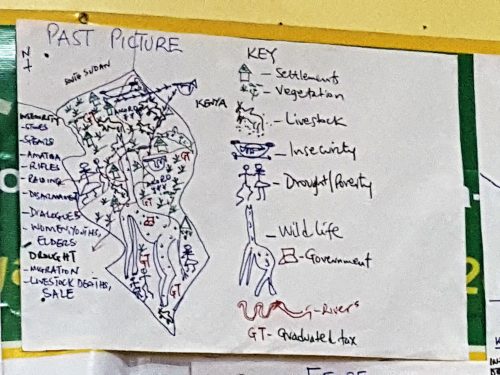 PAST PICTURE
N
SOUTH SUDAN
KENYA
INSECURITY
- SPEARS
- AMATIDA
- RIFLES
- RAIDING
- DISARMAMENT
- DIALOGUES
- WOMEN, YOUTHS,
ELDERS
DROUGHT
- MIGRATION
- LIVESTOCK DEATHS,
SALE
GT
GT
GT
GT
KEY
- Settlements
- Vegetation
- Livestock
- Insecurity
- Drought/Poverty
- Wild life
- Government
- Rivers
GT - Graduated tax
2